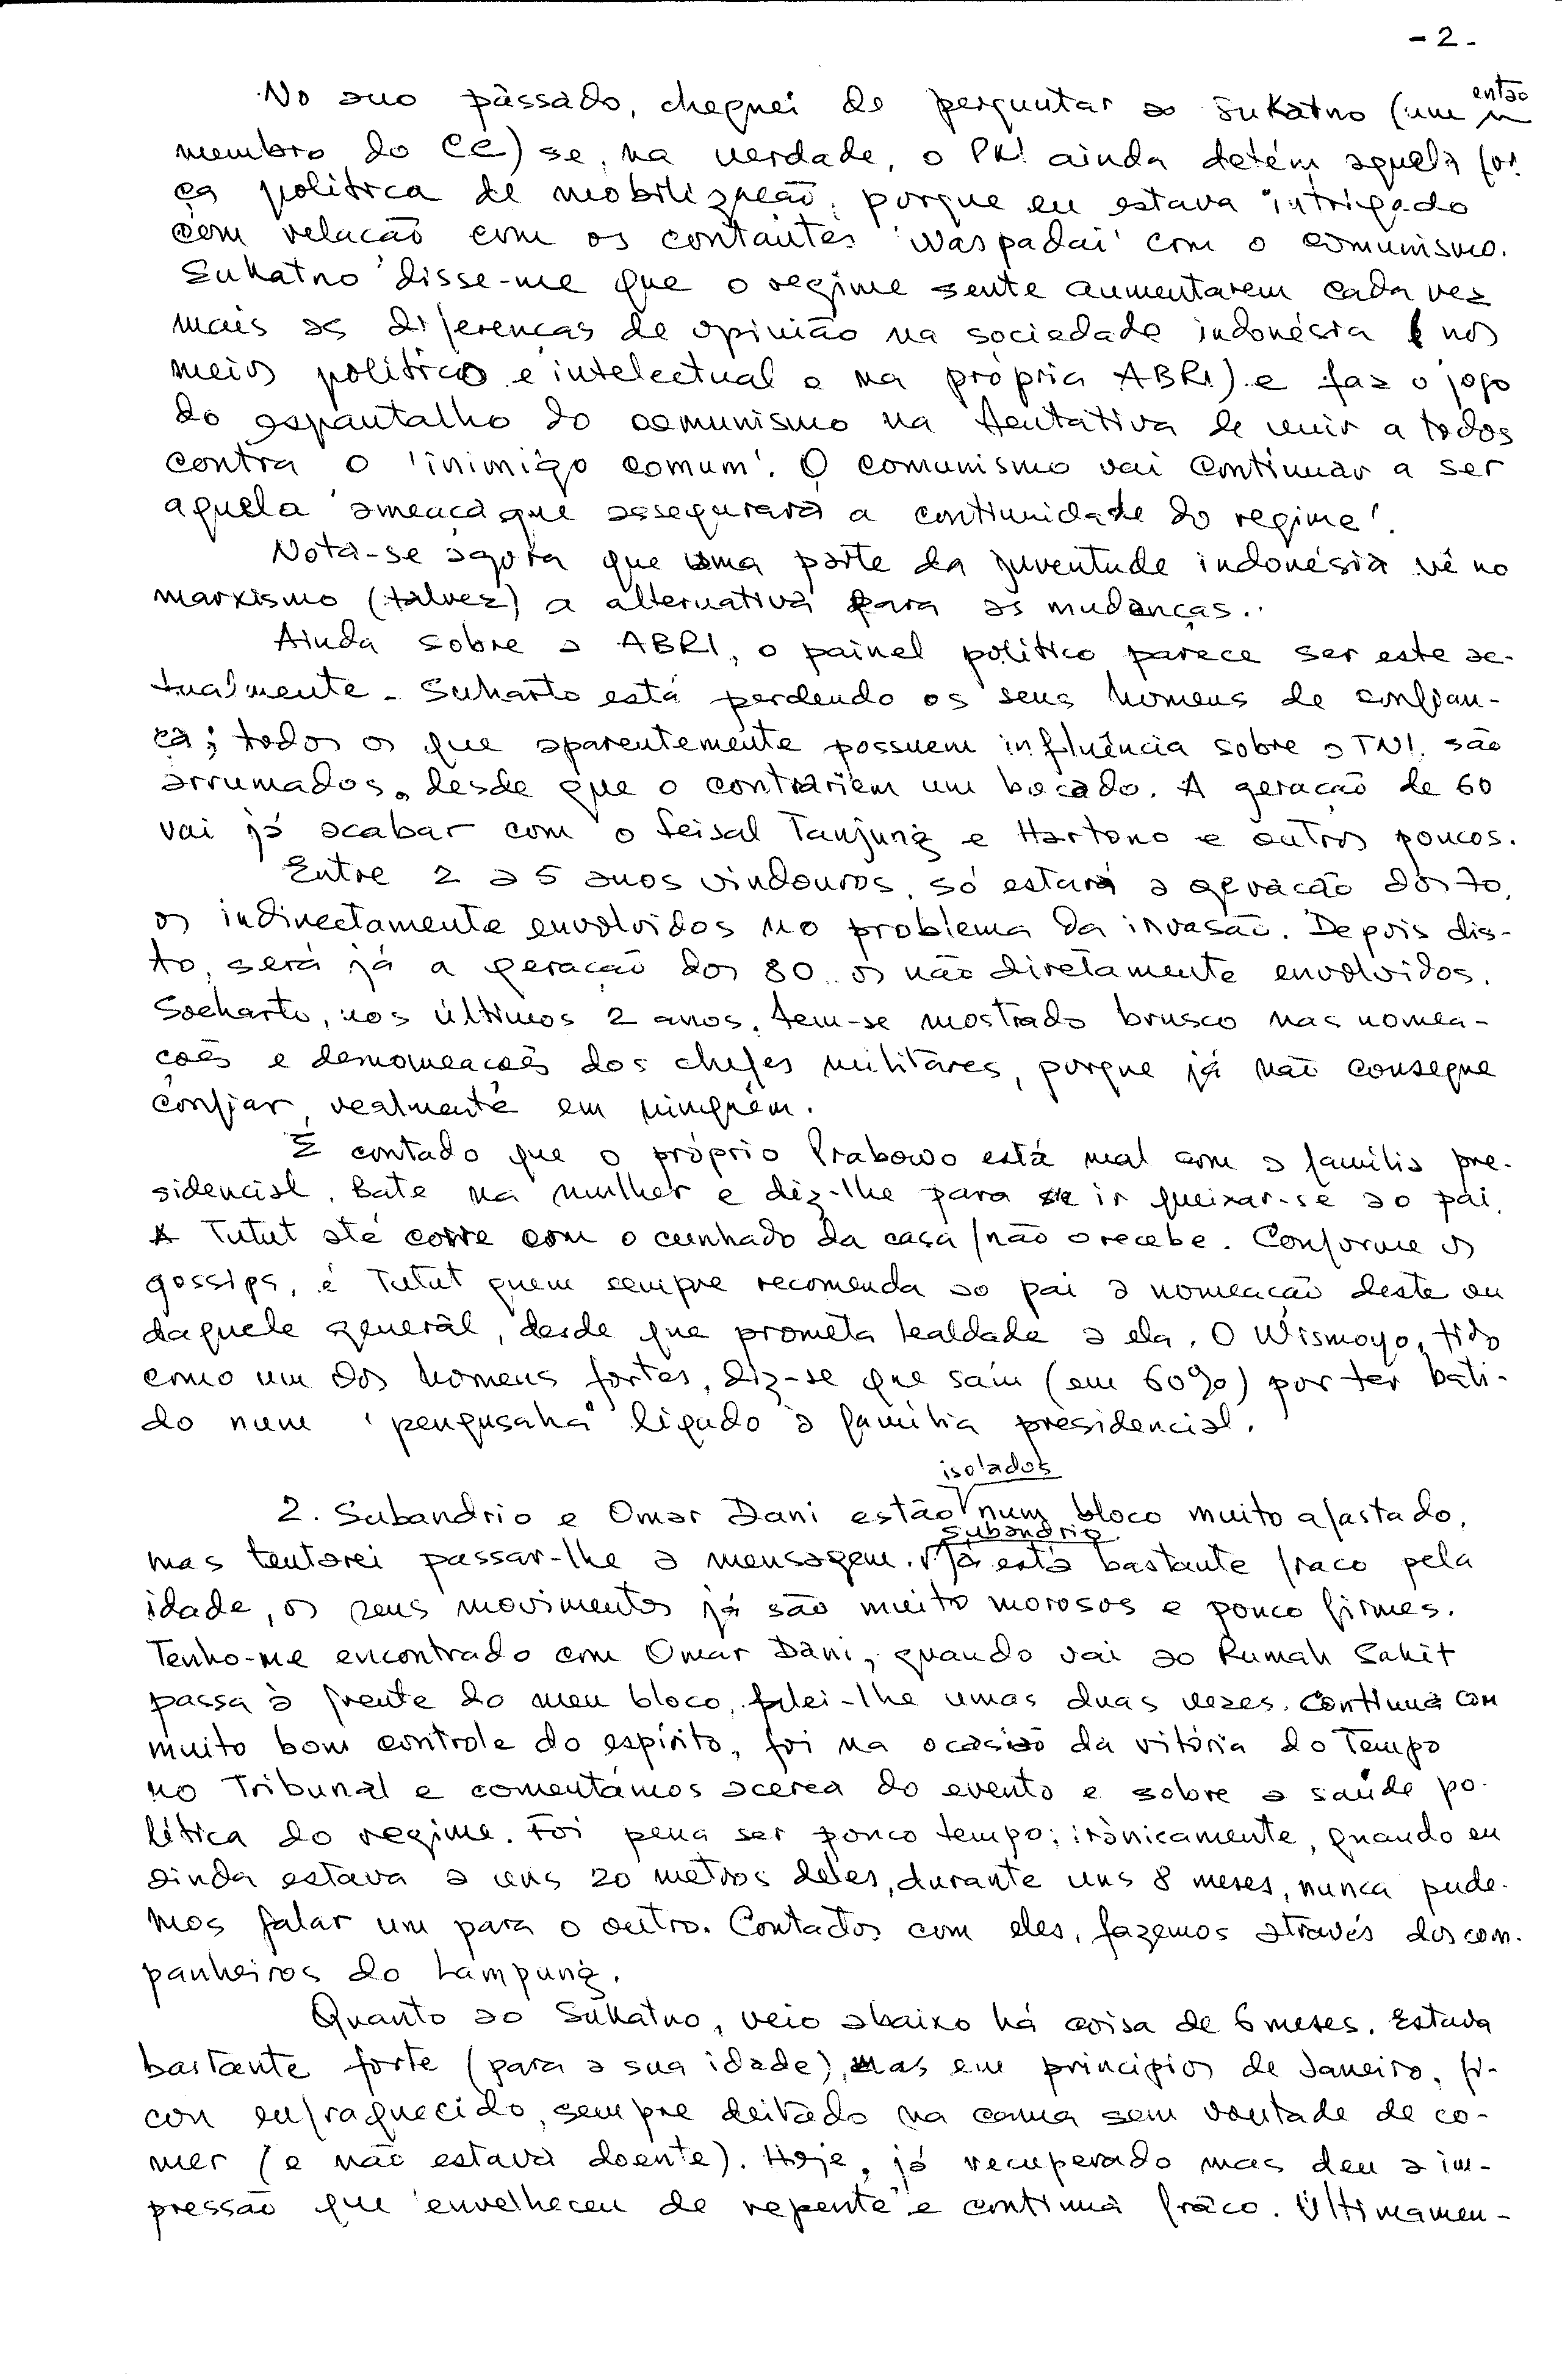 - 2 -
No ano passado, cheguei de perguntar ao Sukatno (um então
membro do CC) se, na verdade, o PKI ainda detém aquela for
ça política de mobilização, porque eu estava intrigado
com relação com os contantes 'waspadai' com o comunismo.
Sukatno disse-me que o regime sente aumentarem cada vez
mais as diferenças de opinião na sociedade indonésia (nos
meios político e intelectual e na própria ABRI) e faz o jogo
do espantalho do comunismo na tentativa de unir a todos
contra o 'inimigo comum'. O comunismo vai continuar a ser
aquela 'ameaça que assegurará a continuidade do regime'.
Nota-se agora que uma parte da juventude indonésia vê no
marxismo (talvez) a alternativa para as mudanças.
Ainda sobre a ABRI, o painel político parece ser este ac-
tualmente - Suharto está perdendo os seus homens de confian-
ça; todos os que aparentemente possuem influência sobre o TNI, são
arrumados, desde que o contrariem um bocado. A geração de 60
vai já acabar com o Feisal Tanjung e Hartono e outros poucos.
Entre 2 a 5 anos vindouros, só estará a geração dos 70,
os indirectamente envolvidos no problema da invasão. Depois dis-
to, será já a geração dos 80, os não diretamente envolvidos.
Soeharto, nos últimos 2 anos, tem-se mostrado brusco nas nomea-
ções e demomeações dos chefes militares, porque já não consegue
confiar realmente em ninguém.
É contado que o próprio Prabowo está mal com a família pre-
sidencial. Bate na mulher e diz-lhe para ir queixar-se ao pai.
A Tutut até corre com o cunhado da casa/não o recebe. Conforme os
gossips, é Tutut quem sempre recomenda ao pai a nomeação deste ou
daquele general, desde que prometa lealdade a ela. O Wismoyo, tido
como um dos homens fortes, diz-se que saiu (em 60%) por ter bati-
do num 'pengusaha' ligado à família presidencial.
2. Subandrio e Omar Dani estão isolados num bloco muito afastado,
mas tentarei passar-lhe a mensagem. Subandrio já está bastante fraco pela
idade, os seus movimentos já são muito morosos e pouco firmes.
Tenho-me encontrado com Omar Dani, quando vai ao Rumah Sakit
passa à frente do meu bloco, falei-lhe umas duas vezes. Continua com
muito bom controle do espírito, foi na ocasião da vitória do Tempo
no Tribunal e comentámos acerca do evento e sobre a saúde po-
lítica do regime. Foi pena ser pouco tempo; irònicamente, quando eu
ainda estava a uns 20 metros deles, durante uns 8 meses, nunca pude-
mos falar um para o outro. Contados com eles, fazemos através dos com-
panheiros do Lampung.
Quanto ao Sukatno, veio abaixo há coisa de 6 meses. Estava
bastante forte (para a sua idade), mas em princípios de Janeiro, fi-
cou enfraquecido, sempre deitado na cama sem vontade de co-
mer (e não estava doente). Hoje, já recuperado mas deu a im-
pressão que 'envelheceu de repente' e continua fraco. Ultimamen-